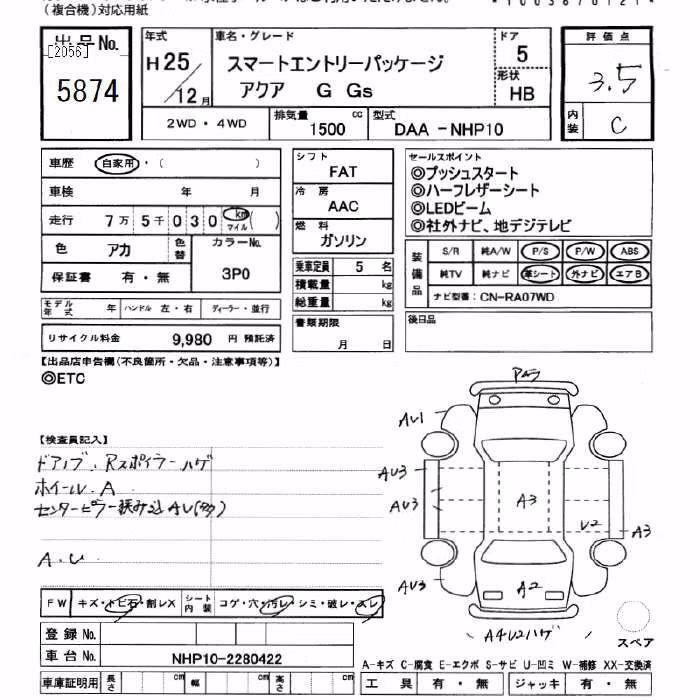 (複合機)対応用紙
出品No.
[2056]
5874
年式
H25/12月
車名・グレード
スマートエントリーパッケージ
アクア G Gs
ドア
5
形状
HB
2WD・4WD
排気量
1500 cc
型式
DAA -NHP10
評価点
3.5
内装
C
車歴 自家用・( )
車検 年 月
走行 7万5千030 km マイル ( )
色 アカ 色替
カラーNo.
3P0
保証書 有・無
モデル年式 年 ハンドル 左・右 ディーラー・並行
リサイクル料金 9,980 円 預託済
シフト
FAT
冷房
AAC
燃料
ガソリン
乗車定員 5 名
積載量 kg
総重量 kg
書類期限
月 日
セールスポイント
◎プッシュスタート
◎ハーフレザーシート
◎LEDビーム
◎社外ナビ、地デジテレビ
装備品
S/R 純A/W P/S P/W ABS
純TV 純ナビ 革シート 外ナビ エアB
ナビ型番: CN-RA07WD
後日品
【出品店申告欄(不良箇所・欠品・注意事項等)】
◎ETC
【検査員記入】
ドアノブ、Rスポイラーハゲ
ホイール、A
センターピラー挟み込 AU(多)
A.U
AU1
AU3
AU3
A3
U2
A3
AU3
A2
A4U2ハゲ
FW キズ・トビ石・割レX シート内装 コゲ・穴・汚レ・シミ・破レ・スレ
登録No.
車台No. NHP10-2280422
車庫証明用 長さ cm 幅 cm 高さ cm
スペア
A-キズ C-腐食 E-エクボ S-サビ U-凹ミ W-補修 XX-交換済
工具 有・無 ジャッキ 有・無